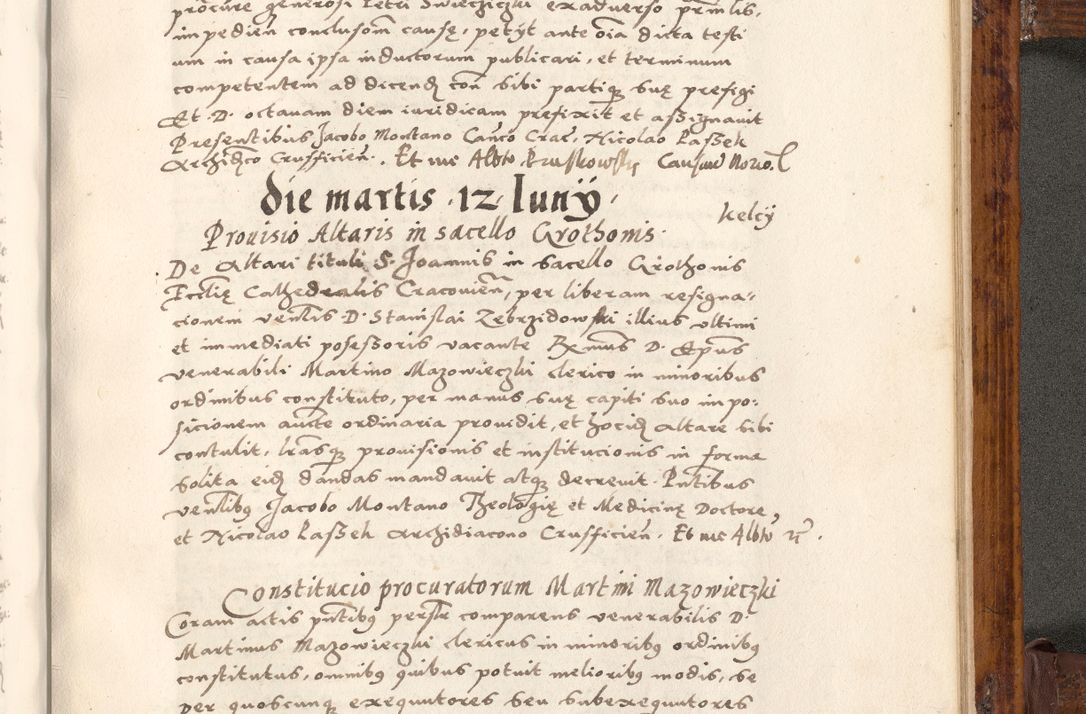 procure generosi Petri Swieciczki exadverso prinlib.
impedien conclusom causę, petyt ante oia dicta testi
um in causa ipsa inductorum publicari, et terminum
competentem ad dicend con sibi partiq suę prefigi
Et D. octauam diem iuridicam prefixit et assignauit
Presentibus Jacobo Montano Canco Crac, Nicolao Passek
Archidco Crusficien. Et me Albto
Die martis 12 Iunÿ
kelcÿ
Prouisio Altaris in sacello Grothonis
De Altari tituli S. Joannis in sacello Grothonis
Ecclię Cathedralis Cracouien, per liberam resigna-
cionem ventlis D. Stanislai Zebrzidowski illius vltimi
et immediati posessoris vacante Rxmus D. Epus
venerabili Martino Mazowieczki clerico in minoribus
ordinibus constituto, per manus suę capiti suo impo:
sicionem aucte ordinaria prouidit, et hocid altare sibi
contulit, lrasq prouisionis et institucionis in forma
solita eid dandas mandauit atq decreuit. Pntibus
ventlibq Jacobo Montano Theologię et Medicinę Doctore,
et Nicolao Passek Archidiacono Crusficien. Et me Albto
Constitucio procuratorum Martini Mazowieczki
Coram actis pntibq persolr comparens venerabilis D.
Martinus Mazowieczki clericus in minoribq ordinibq
constitutus, omnibq quibus potuit melioribq modis, se
per quoscunq exequutores seu subexequutores